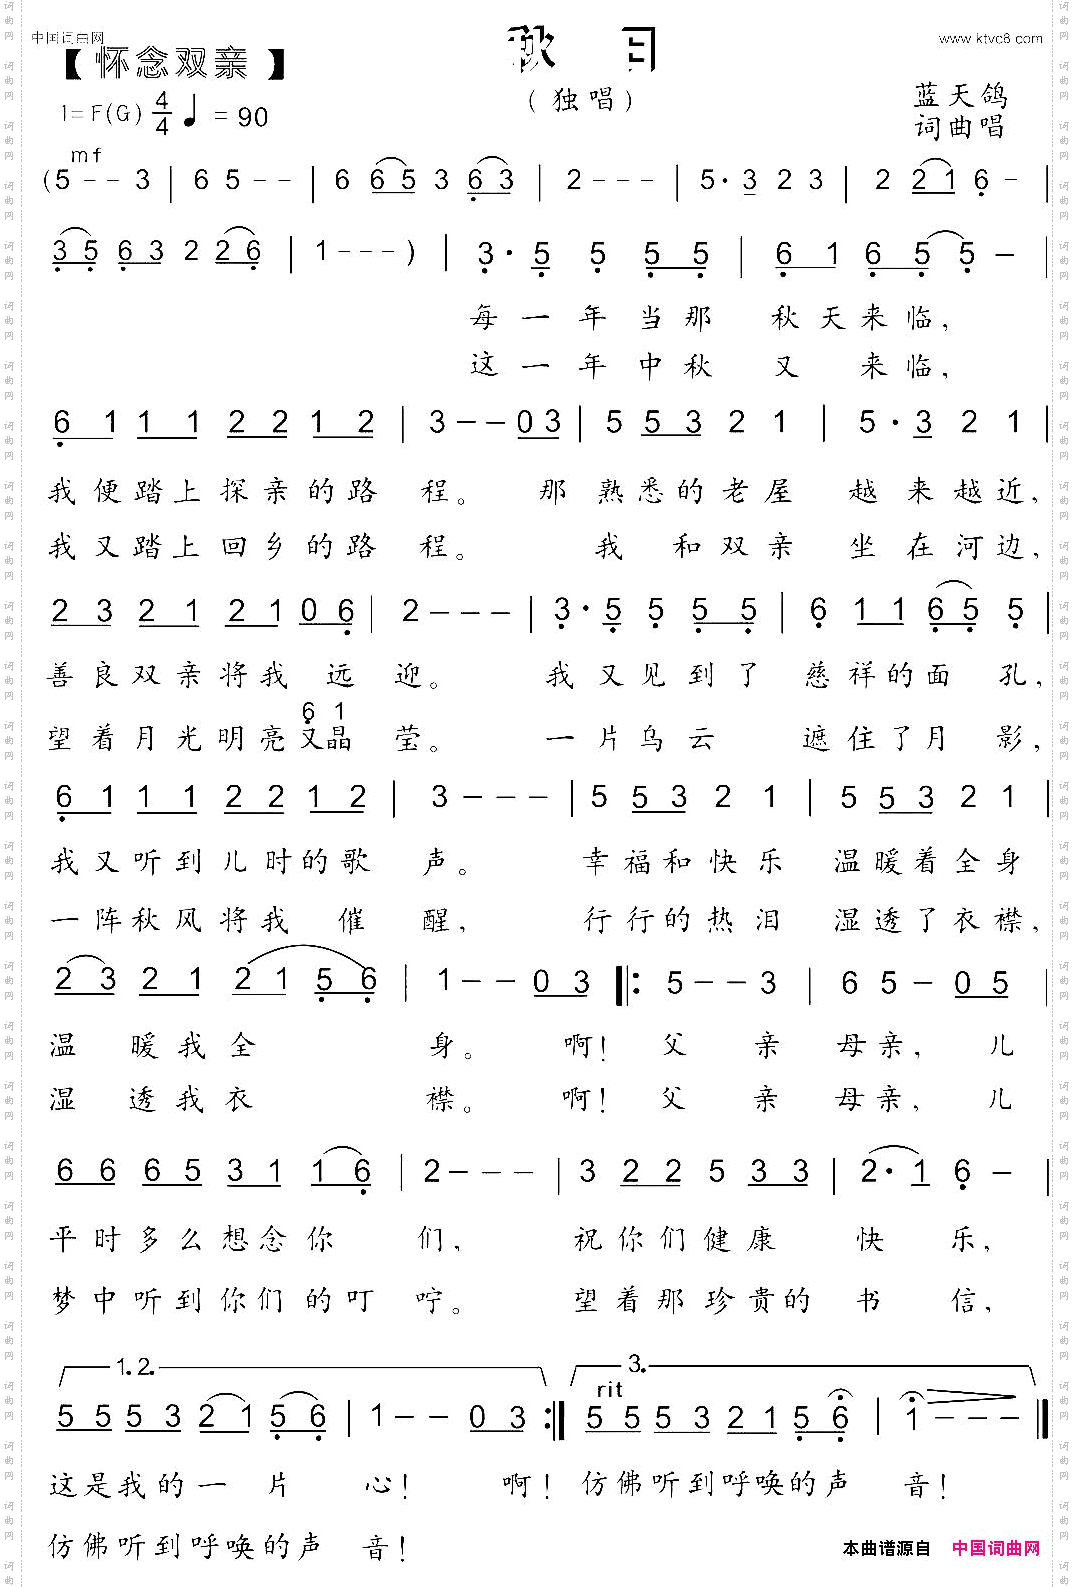 中国词曲网
秋 日
www.ktvc8.com
【怀念双亲】
(独唱)
1=F(G) 4/4 ♩=90
蓝天鸽
词曲唱
mf
(5 - - 3 | 6 5 - - | 6 6 5 3 6 3 | 2 - - - | 5· 3 2 3 | 2 2 1 6 - |
3 5 6 3 2 2 6 | 1 - - - ) | 3· 5 5 5 5 | 6 1 6 5 5 - |
每一年当那 秋天来临,
这一年中秋 又 来临,
6 1 1 1 2 2 1 2 | 3 - - 0 3 | 5 5 3 2 1 | 5· 3 2 1 |
我便踏上探亲的路 程。 那 熟悉的老屋 越来越近,
我又踏上回乡的路 程。 我 和双亲 坐在河边,
2 3 2 1 2 1 0 6 | 2 - - - | 3· 5 5 5 5 | 6 1 1 6 5 5 |
善良双亲将我 远 迎。 我又见到了 慈祥的面 孔,
6 1
望着月光明亮又晶 莹。 一片乌云 遮住了月 影,
6 1 1 1 2 2 1 2 | 3 - - - | 5 5 3 2 1 | 5 5 3 2 1 |
我又听到儿时的歌 声。 幸福和快乐 温暖着全身
一阵秋风将我 催 醒, 行行的热泪 湿透了衣襟,
2 3 2 1 2 1 5 6 | 1 - - 0 3 ‖: 5 - - 3 | 6 5 - 0 5 |
温 暖我全 身。 啊! 父 亲 母亲, 儿
湿 透我衣 襟。 啊! 父 亲 母亲, 儿
6 6 6 5 3 1 1 6 | 2 - - - | 3 2 2 5 3 3 | 2· 1 6 - |
平时多么想念你 们, 祝你们健康 快 乐,
梦中听到你们的叮 咛。 望着那珍贵的 书 信,
1. 2. 3.
rit
5 5 5 3 2 1 5 6 | 1 - - 0 3 :‖ 5 5 5 3 2 1 5 6 | 1 - - - ‖
这是我的一 片 心! 啊! 仿佛听到呼唤的声 音!
仿佛听到呼唤的声 音!
本曲谱源自 中国词曲网